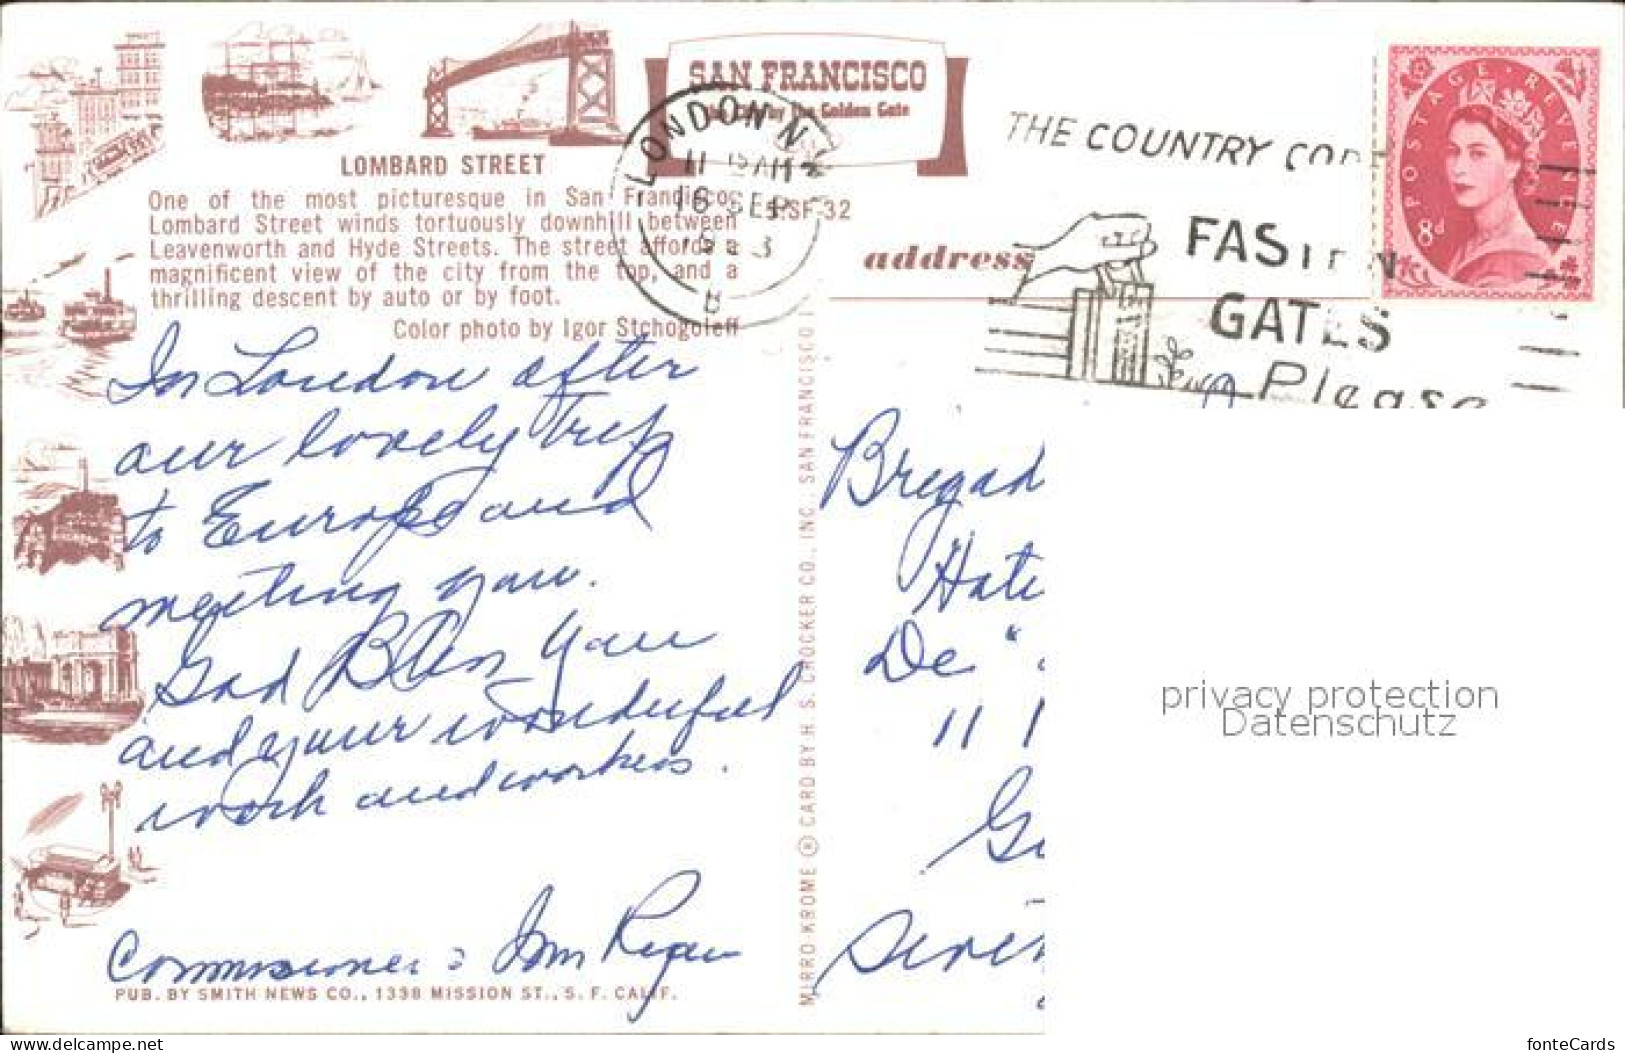 SAN FRANCISCO
by the Golden Gate
LOMBARD STREET
One of the most picturesque in San Francisco,
Lombard Street winds tortuously downhill between
Leavenworth and Hyde Streets. The street affords a
magnificent view of the city from the top, and a
thrilling descent by auto or by foot.
Color photo by Igor Stchogoleff
SF-32
LONDON N
11 15 AM
16 SEP
B
THE COUNTRY COD
FASTEN
GATES
Please
POSTAGE REVENUE
8d
address
In London after
our lovely trip
to Europe and
meeting you.
God Bless You
and your wonderful
work and workers.
Commissioner
PUB. BY SMITH NEWS CO., 1338 MISSION ST., S. F. CALIF.
MIRRO-KROME ® CARD BY H. S. CROCKER CO., INC. SAN FRANCISCO 1
Bregad
De "
11
privacy protection
Datenschutz
www.delcampe.net
fonteCards